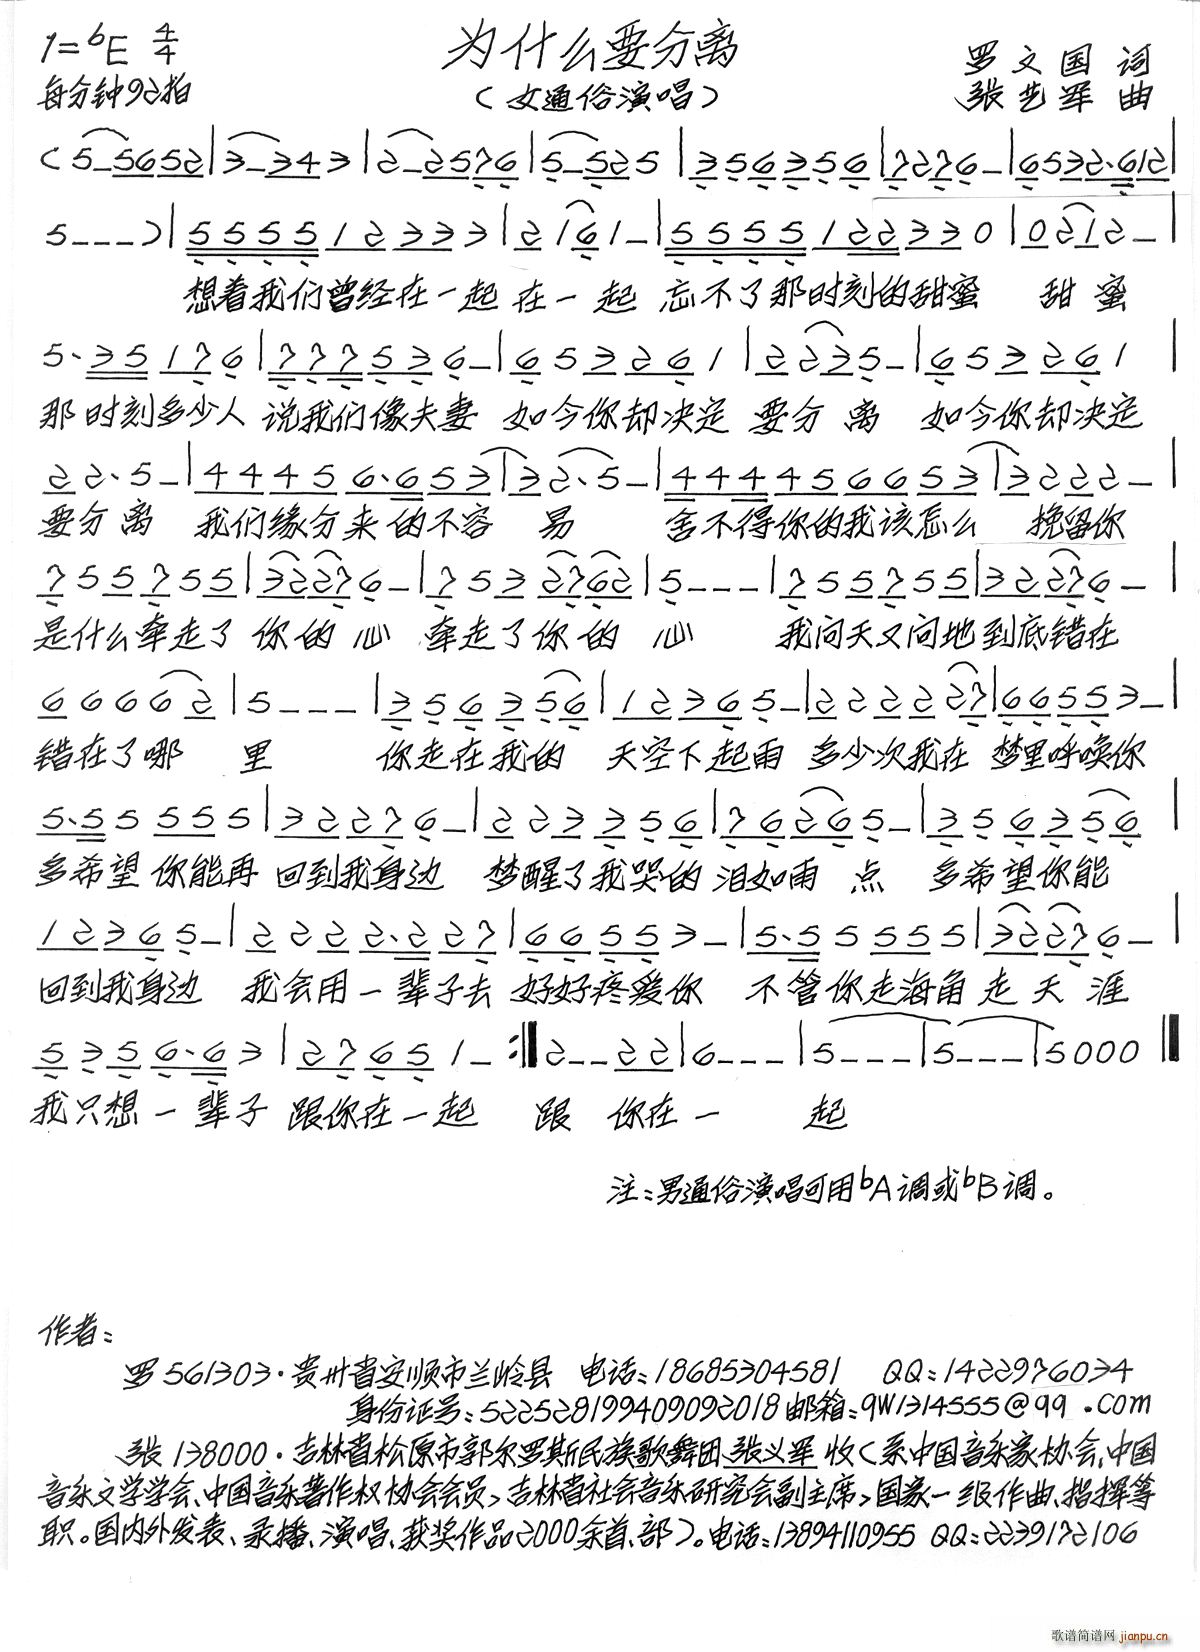 1=bE 4/4 为什么要分离 罗文国 词
每分钟92拍 (女通俗演唱) 张艺军 曲
(5-5652|3-343|2-2576|5-525|356356|7276-|6532·612|
5---)|555512333|2161-|5555122330|0212-|
想着我们曾经在一起在一起 忘不了那时刻的甜蜜 甜蜜
5·35176|777536-|653261|2235-|653261|
那时刻多少人 说我们像夫妻 如今你却决定 要分离 如今你却决定
22·5-|44456·653|32·5-|44456653|3222-|
要分离 我们缘分来的不容易 舍不得你的我该怎么 挽留你
755755|32276-|7532762|5---|755755|32276-|
是什么牵走了你的心 牵走了你的心 我问天又问地到底错在
66662|5---|356356|12365-|222227|66553-|
错在了哪里 你走在我的 天空下起雨 多少次我在 梦里呼唤你
5·55555|32276-|223356|76265-|356356|
多希望你能再 回到我身边 梦醒了我哭的泪如雨点 多希望你能
12365-|2222·227|66553-|5·55555|32276-|
回到我身边 我会用一辈子去 好好疼爱你 不管你走海角走天涯
5356·63|27651-:‖2--22|6---|5---|5---|5000‖
我只想一辈子 跟你在一起 跟 你在一 起
注:男通俗演唱可用bA调或bB调。
作者:
罗561303·贵州省安顺市兰岭县 电话:18685304581 QQ:1422976034
身份证号:522528199409092018邮箱:qw1314555@qq.com
张138000·吉林省松原市郭尔罗斯民族歌舞团张义军 收(系中国音乐家协会、中国
音乐文学学会、中国音乐著作权协会会员,吉林省社会音乐研究会副主席,国家一级作曲、指挥等
职。国内外发表、录播、演唱、获奖作品2000余首、部)。电话:13894110955 QQ:2239172106
歌谱简谱网
jianpu.cn